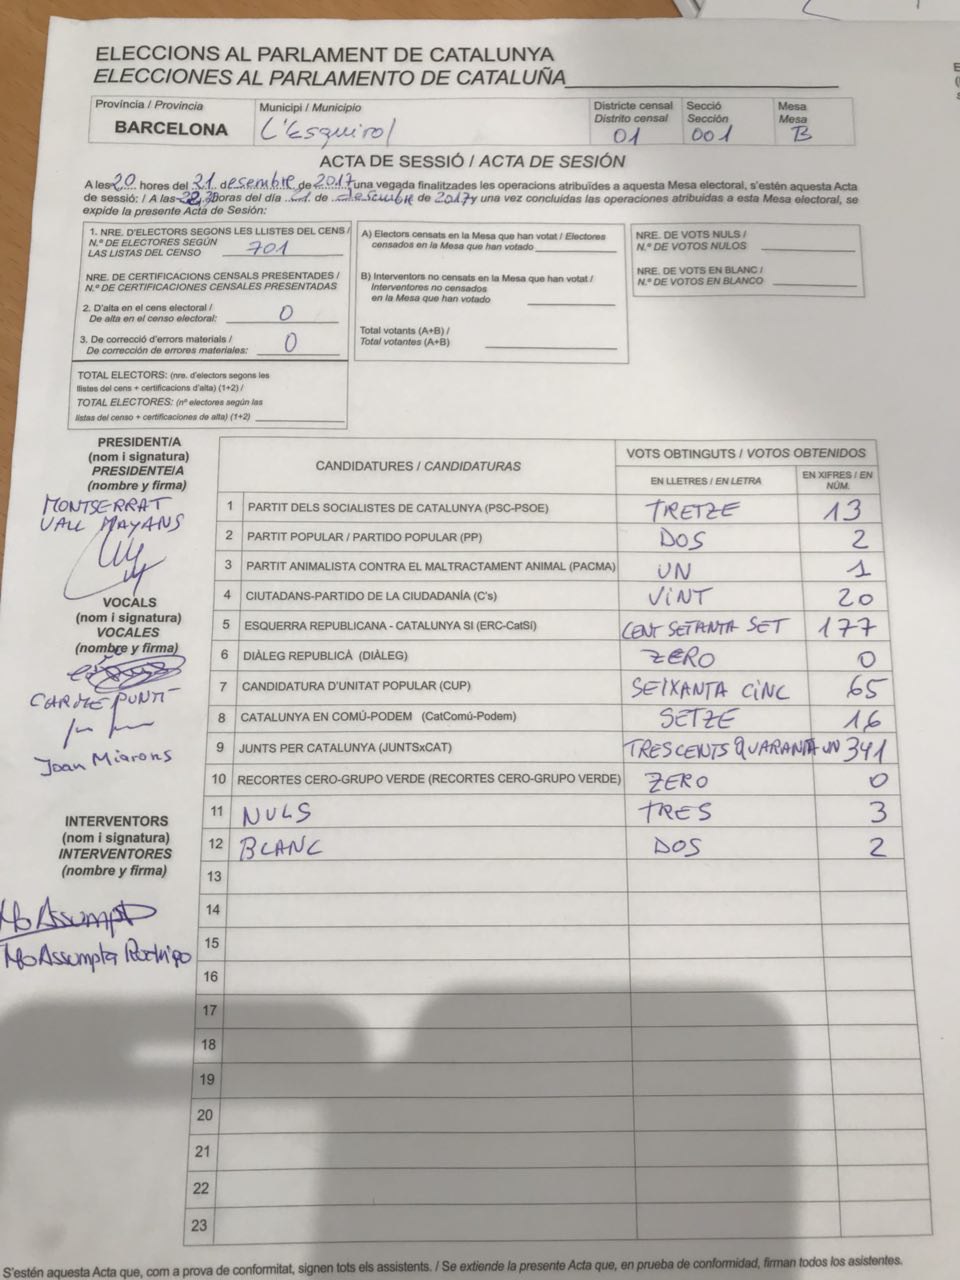 ELECCIONS AL PARLAMENT DE CATALUNYA
ELECCIONES AL PARLAMENTO DE CATALUÑA
Província / Provincia
BARCELONA
Municipi / Municipio
L'Esquirol
Districte censal
Distrito censal
01
Secció
Sección
001
Mesa
Mesa
B
ACTA DE SESSIÓ / ACTA DE SESIÓN
A les 20 hores del 21 desembre de 2017 una vegada finalitzades les operacions atribuïdes a aquesta Mesa electoral, s'estén aquesta Acta
de sessió: / A las horas del día 21 de Desembre de 2017 y una vez concluidas las operaciones atribuidas a esta Mesa electoral, se
expide la presente Acta de Sesión:
1. NRE. D'ELECTORS SEGONS LES LLISTES DEL CENS /
N.º DE ELECTORES SEGÚN
LAS LISTAS DEL CENSO 701
NRE. DE CERTIFICACIONS CENSALS PRESENTADES /
N.º DE CERTIFICACIONES CENSALES PRESENTADAS
2. D'alta en el cens electoral /
De alta en el censo electoral: 0
3. De correcció d'errors materials /
De corrección de errores materiales: 0
TOTAL ELECTORS: (nre. d'electors segons les
llistes del cens + certificacions d'alta) (1+2) /
TOTAL ELECTORES: (nº electores según las
listas del censo + certificaciones de alta) (1+2)
A) Electors censats en la Mesa que han votat / Electores
censados en la Mesa que han votado
B) Interventors no censats en la Mesa que han votat /
Interventores no censados
en la Mesa que han votado
Total votants (A+B) /
Total votantes (A+B)
NRE. DE VOTS NULS /
N.º DE VOTOS NULOS
NRE. DE VOTS EN BLANC /
N.º DE VOTOS EN BLANCO
PRESIDENT/A
(nom i signatura)
PRESIDENTE/A
(nombre y firma)
MONTSERRAT
VALL MAYANS
VOCALS
(nom i signatura)
VOCALES
(nombre y firma)
CARME PUNTÍ
Joan Miarons
INTERVENTORS
(nom i signatura)
INTERVENTORES
(nombre y firma)
Mo Assumpta
Mo Assumpta Rodrigo
CANDIDATURES / CANDIDATURAS
VOTS OBTINGUTS / VOTOS OBTENIDOS
EN LLETRES / EN LETRA
EN XIFRES / EN NÚM.
1 PARTIT DELS SOCIALISTES DE CATALUNYA (PSC-PSOE) TRETZE 13
2 PARTIT POPULAR / PARTIDO POPULAR (PP) DOS 2
3 PARTIT ANIMALISTA CONTRA EL MALTRACTAMENT ANIMAL (PACMA) UN 1
4 CIUTADANS-PARTIDO DE LA CIUDADANÍA (C's) VINT 20
5 ESQUERRA REPUBLICANA - CATALUNYA SI (ERC-CatSí) CENT SETANTA SET 177
6 DIÀLEG REPUBLICÀ (DIÀLEG) ZERO 0
7 CANDIDATURA D'UNITAT POPULAR (CUP) SEIXANTA CINC 65
8 CATALUNYA EN COMÚ-PODEM (CatComú-Podem) SETZE 16
9 JUNTS PER CATALUNYA (JUNTSxCAT) TRESCENTS QUARANTA UN 341
10 RECORTES CERO-GRUPO VERDE (RECORTES CERO-GRUPO VERDE) ZERO 0
11 NULS TRES 3
12 BLANC DOS 2
13
14
15
16
17
18
19
20
21
22
23
S'estén aquesta Acta que, com a prova de conformitat, signen tots els assistents. / Se extiende la presente Acta que, en prueba de conformidad, firman todos los asistentes.